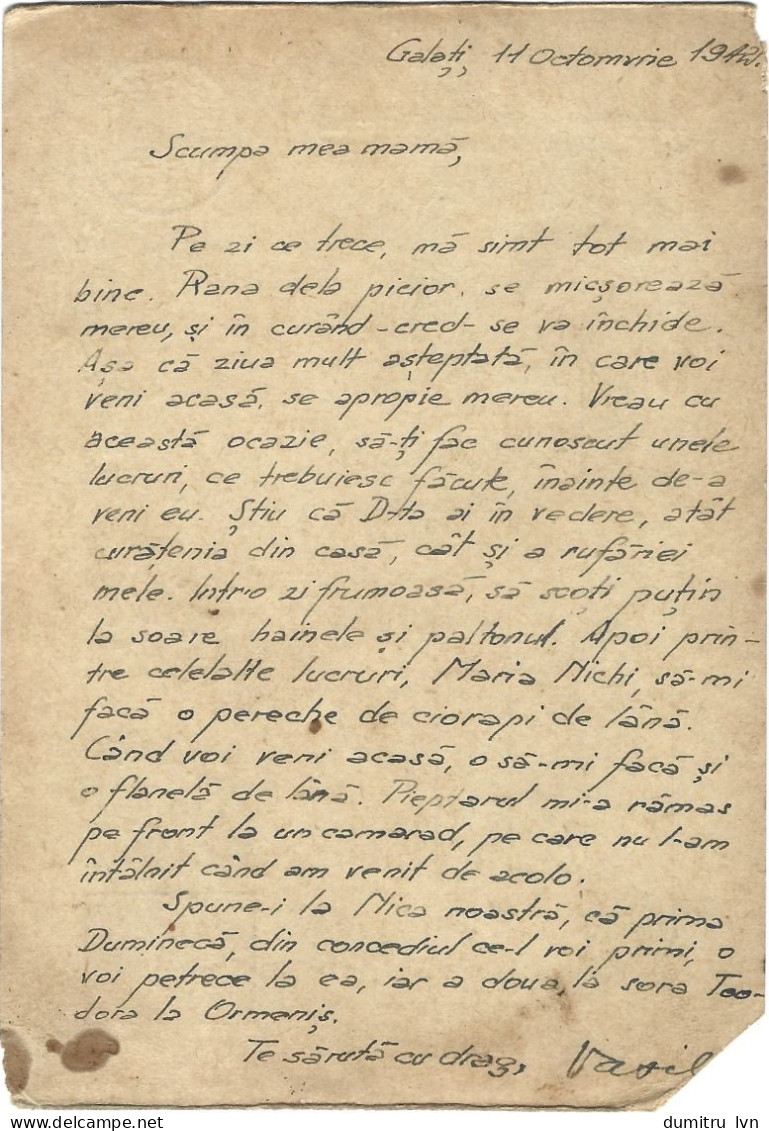 Galați, 11 Octomvrie 194
Scumpa mea mamă,
Pe zi ce trece, mă simt tot mai
bine. Rana dela picior, se micșorează
mereu, și în curând -cred- se va închide.
Așa că ziua mult așteptată, în care voi
veni acasă, se apropie mereu. Vreau cu
această ocazie, să-ți fac cunoscut unele
lucruri, ce trebuiesc făcute, înainte de-a
veni eu. Știu că D-ta ai în vedere, atât
curățenia din casă, cât și a rufăriei
mele. Intr-o zi frumoasă, să scoți puțin
la soare hainele și paltonul. Apoi prin-
tre celelalte lucruri, Maria Nichi, să-mi
facă o pereche de ciorapi de lână.
Când voi veni acasă, o să-mi facă și
o flanelă de lână. Pieptarul mi-a rămas
pe front la un camarad, pe care nu l-am
întâlnit când am venit de acolo.
Spune-i la Nica noastră, că prima
Duminecă, din concediul ce-l voi primi, o
voi petrece la ea, iar a doua, la sora Teo-
dora la Ormeniș.
Te sărută cu drag, Vasil
dumitru lvn